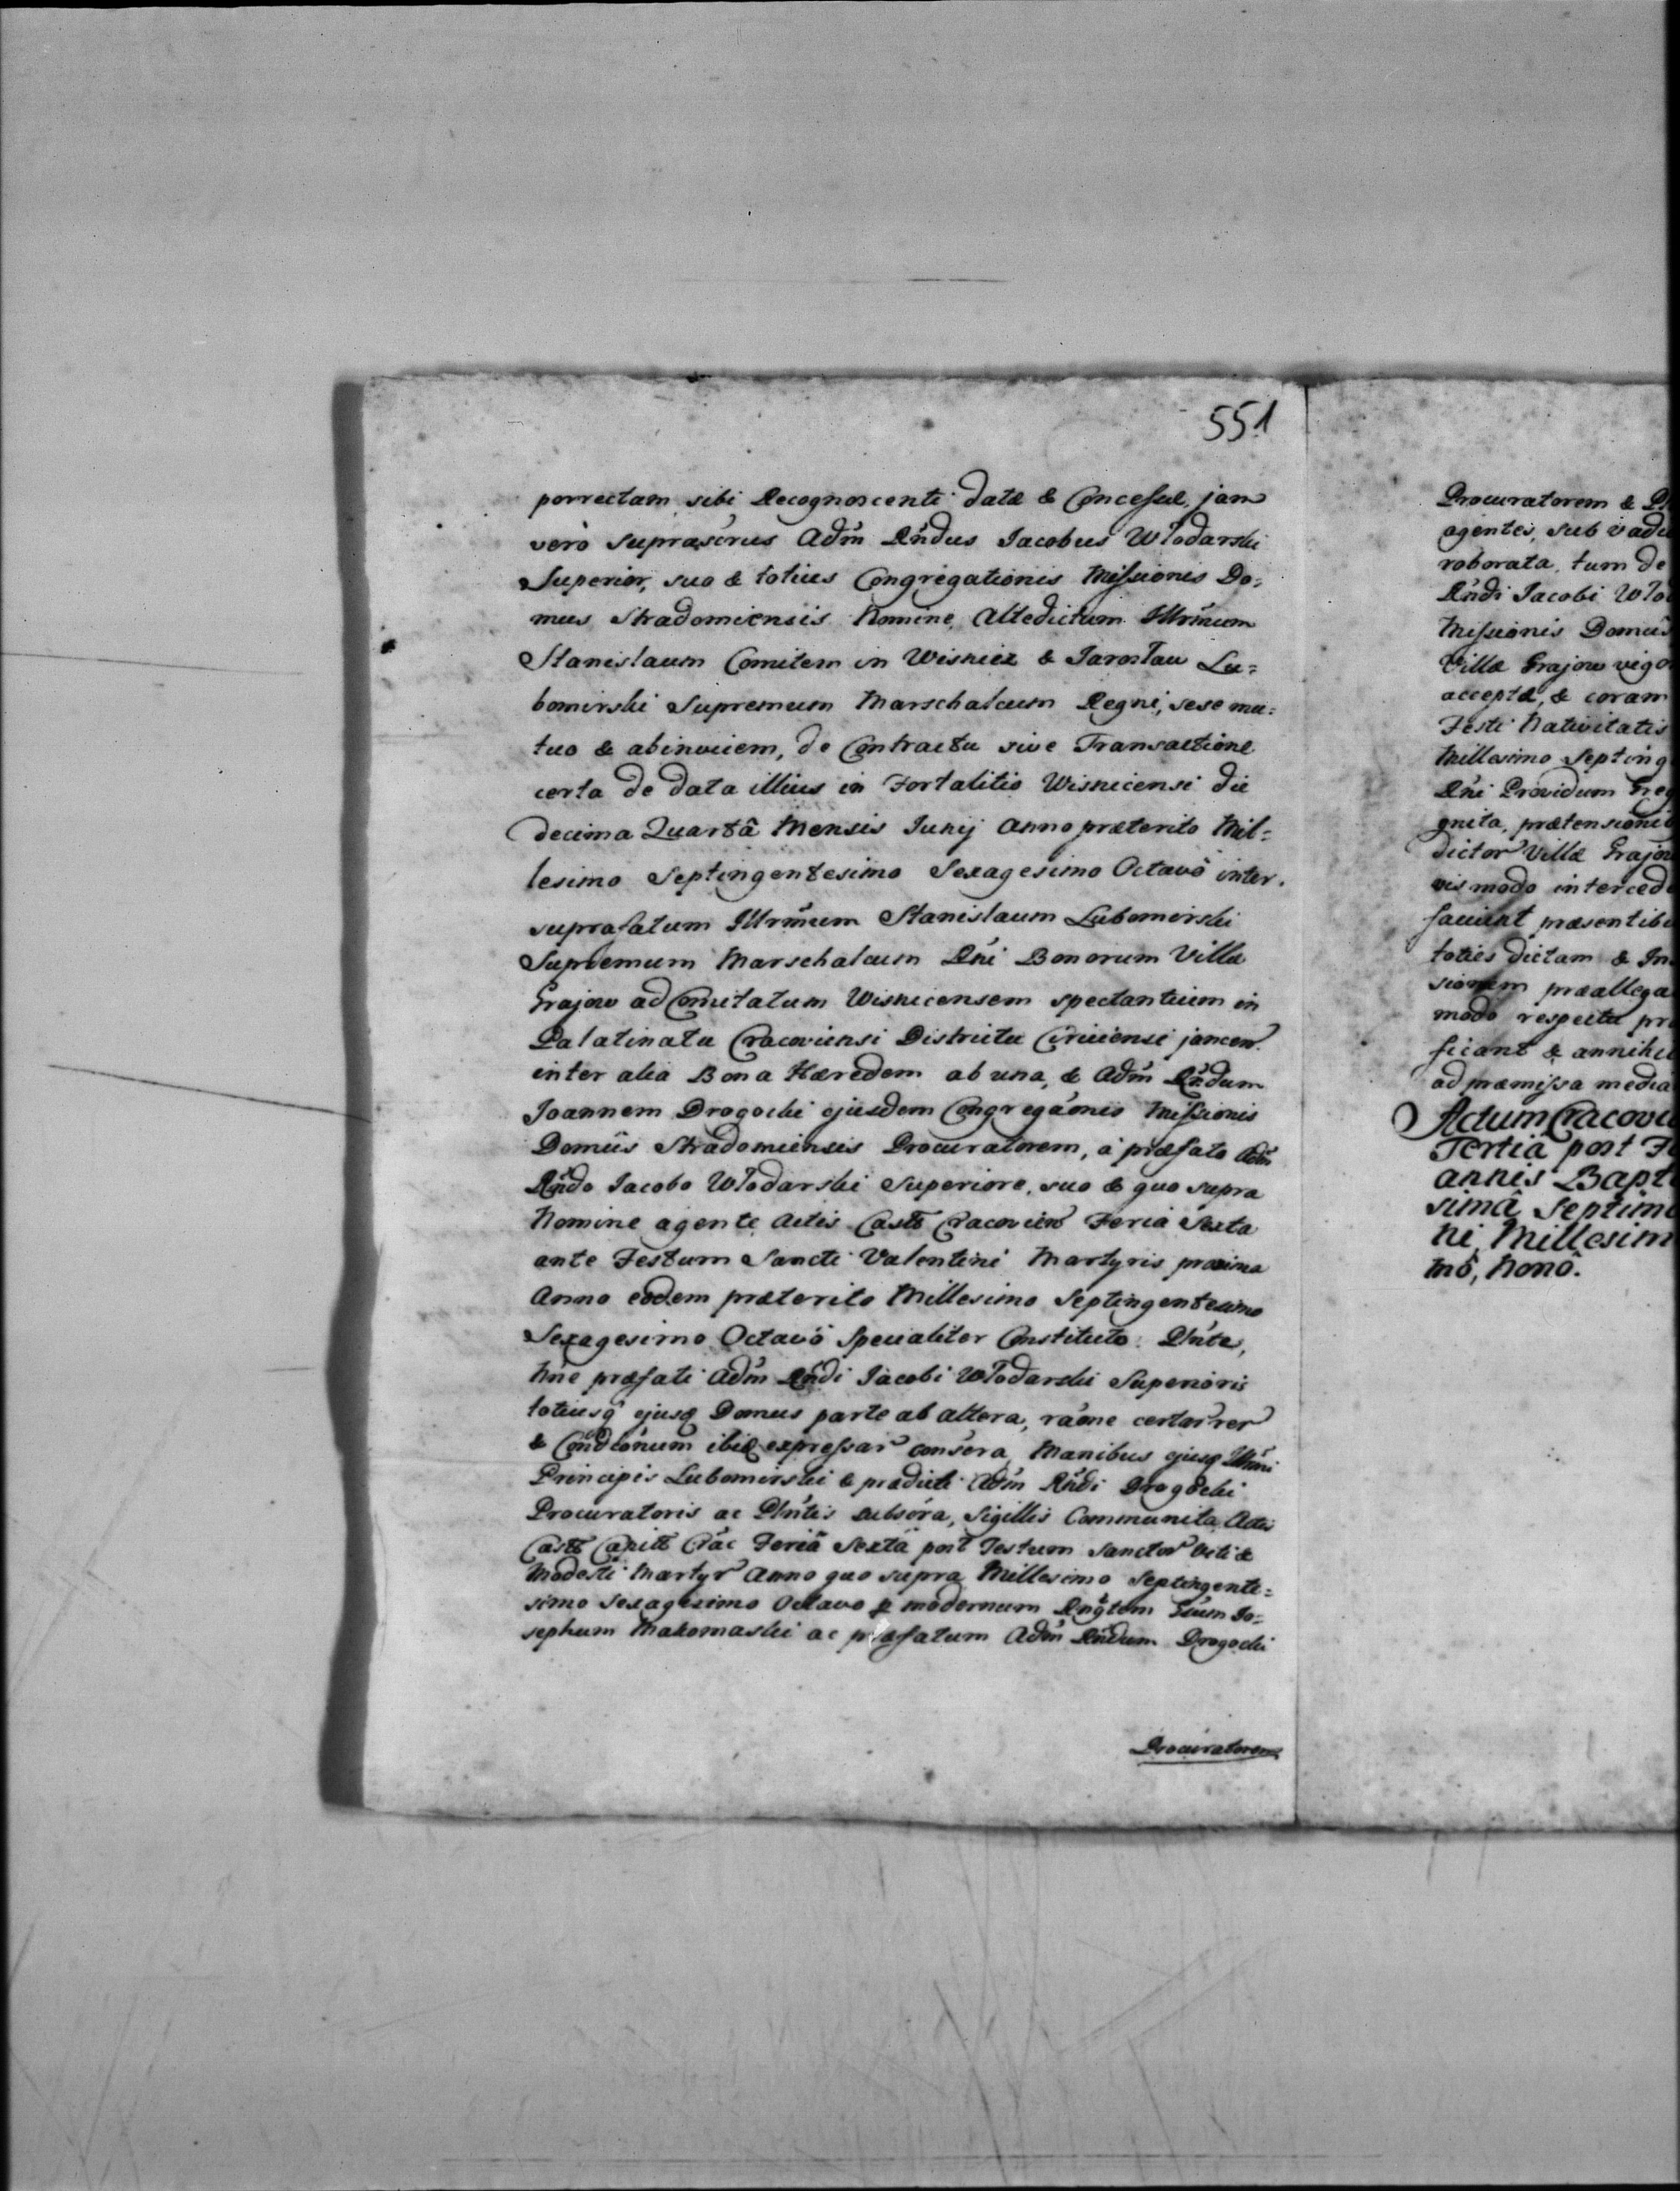 551
porrectam sibi Recognoscenti datæ & Concessæ, jam
verò suprascrus Adm̃ Rńdus Jacobus Włodarski
Superior, suo & totius Congregationis Missionis Do=
mus Stradomiensis Nomine, Altedictum Illrm̃um
Stanislaum Comitem in Wisnicz & Jarosław Lu=
bomirski Supremum Marschalcum Regni, sese mu=
tuo & abinvicem, de Contractu sive Transactione
certa de data illius in Fortalitio Wisnicensi die
decima Quartâ Mensis Junij Anno præterito Mil=
lesimo Septingentesimo Sexagesimo Octavô inter
suprafatum Illrm̃um Stanislaum Lubomirski
Supremum Marschalcum Rńi Bonorum Villæ
Grajow ad Comitatum Wisnicensem spectantium in
Palatinatu Cracoviensi Districtu jacen
inter alia Bona Hæredem ab una, & Adm̃ Rńdum
Joannem Drogocki ejusdem Congregaónis Missionis
Domûs Stradomiensis Procuratorem, à præfato Adm̃
Rńdo Jacobo Włodarski Superiore, suo & quo supra
Nomine agente Actis Castr Cracovien Feria Sexta
ante Festum Sancti Valentini Martyris proxima
Anno eodem præterito Millesimo Septingentesimo
Sexagesimo Octavô Specialiter Constituto. Plńte,
Nńe præfati Adm̃ Rńdi Jacobi Włodarski Superioris
totiusq ejusq Domus parte ab altera, ráone certar rer
& Cońdiónum ibiq expressar consera, Manibus ejusq Illmi
Principis Lubomirski & prædicti Adm̃ Rńdi Drogocki
Procuratoris ac Plńtis subsóra, Sigillis Communita, Actis
Castr Capitt Crac Feriâ Sextâ post Festum Sanctor Viti &
Modesti Martyr Anno quo supra Millesimo Septingente=
simo Sexagesimo Octavo p modernum Rngtem Jo=
sephum Makomaski ac præfatum Adm̃ Rńdum Drogocki
Procuratorem
Procuratorem &
agentes, sub vadi
roborata, tum de
Rńdi Jacobi Wło
Missionis Domûs
Villæ Grajow vigo
acceptæ, & coram
Festi Nativitatis
Millesimo Septing
Rńi Providum Greg
gnita, prætensioni
dictor Villæ Grajow
vis modo interced
faciunt præsentib
toties dictam & In
sionem præallega
modo respectu pr
ficant & annihi
ad præmissa media
Actum Cracovi
Tertiâ post F
annis Bapt
simâ Septim
ni, Millesim
mô, Nonô.